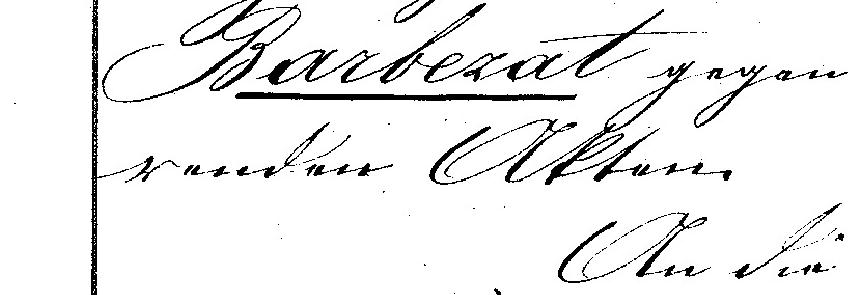 Barberat gegen
renden Akten.
An die